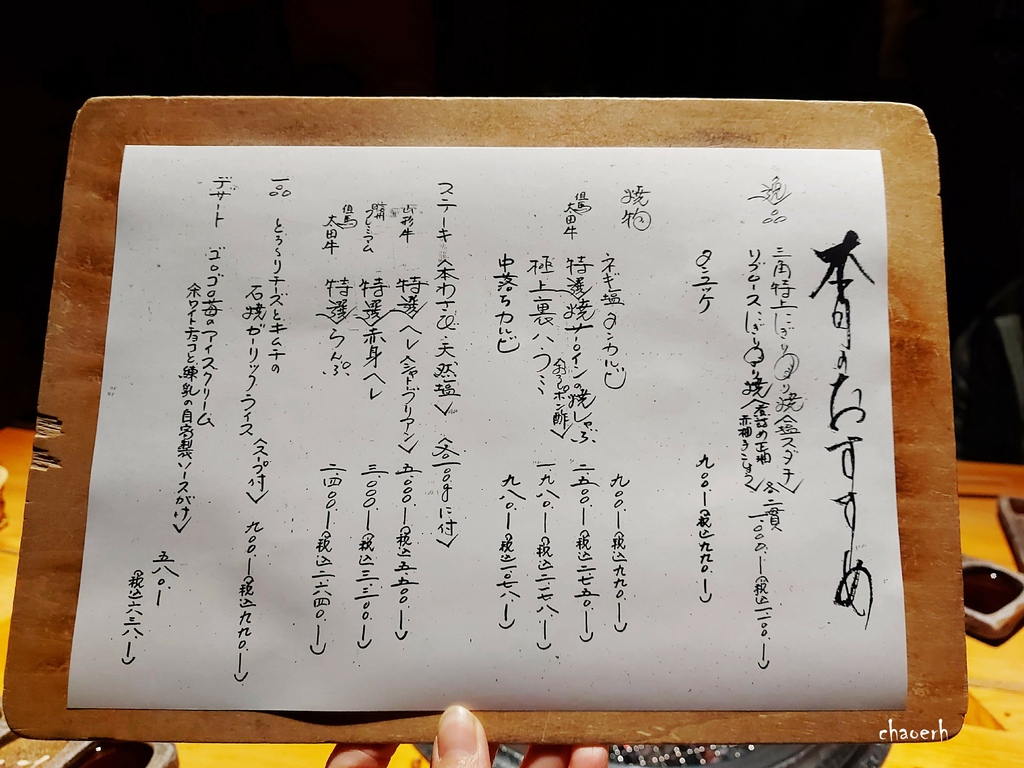 本日のおすすめ
逸品
三角特上にぎり〈炙り焼 塩スダチ〉
リブロースにぎり〈炙り焼
各二貫
一、〇〇〇.ー(税込一、一〇〇.ー)
タンユッケ 九〇〇.ー(税込九九〇.ー)
焼物
ネギ塩タンカルビ 九〇〇.ー(税込九九〇.ー)
但馬太田牛 特選焼サーロインの焼しゃぶ 二、五〇〇.ー(税込二、七五〇.ー)
〈おろしポン酢〉
極上裏ハラミ 一、九八〇.ー(税込二、一七八.ー)
中落ちカルビ 九八〇.ー(税込一、〇七八.ー)
ステーキ〈本わさび・天然塩〉〈各一〇〇gに付〉
山形牛 特選ヘレ〈シャトーブリアン〉 五、〇〇〇.ー(税込五、五〇〇.ー)
プレミアム 特選赤身ヘレ 三、〇〇〇.ー(税込三、三〇〇.ー)
但馬太田牛 特選らんぷ 二、四〇〇.ー(税込二、六四〇.ー)
一品 とろ〜りチーズとキムチの
石焼ガーリックライス〈スープ付〉 九〇〇.ー(税込九九〇.ー)
デザート ゴロゴロ苺のアイスクリーム
〈ホワイトチョコと練乳の自家製ソースがけ〉
五八〇.ー
(税込六三八.ー)
chaoerh